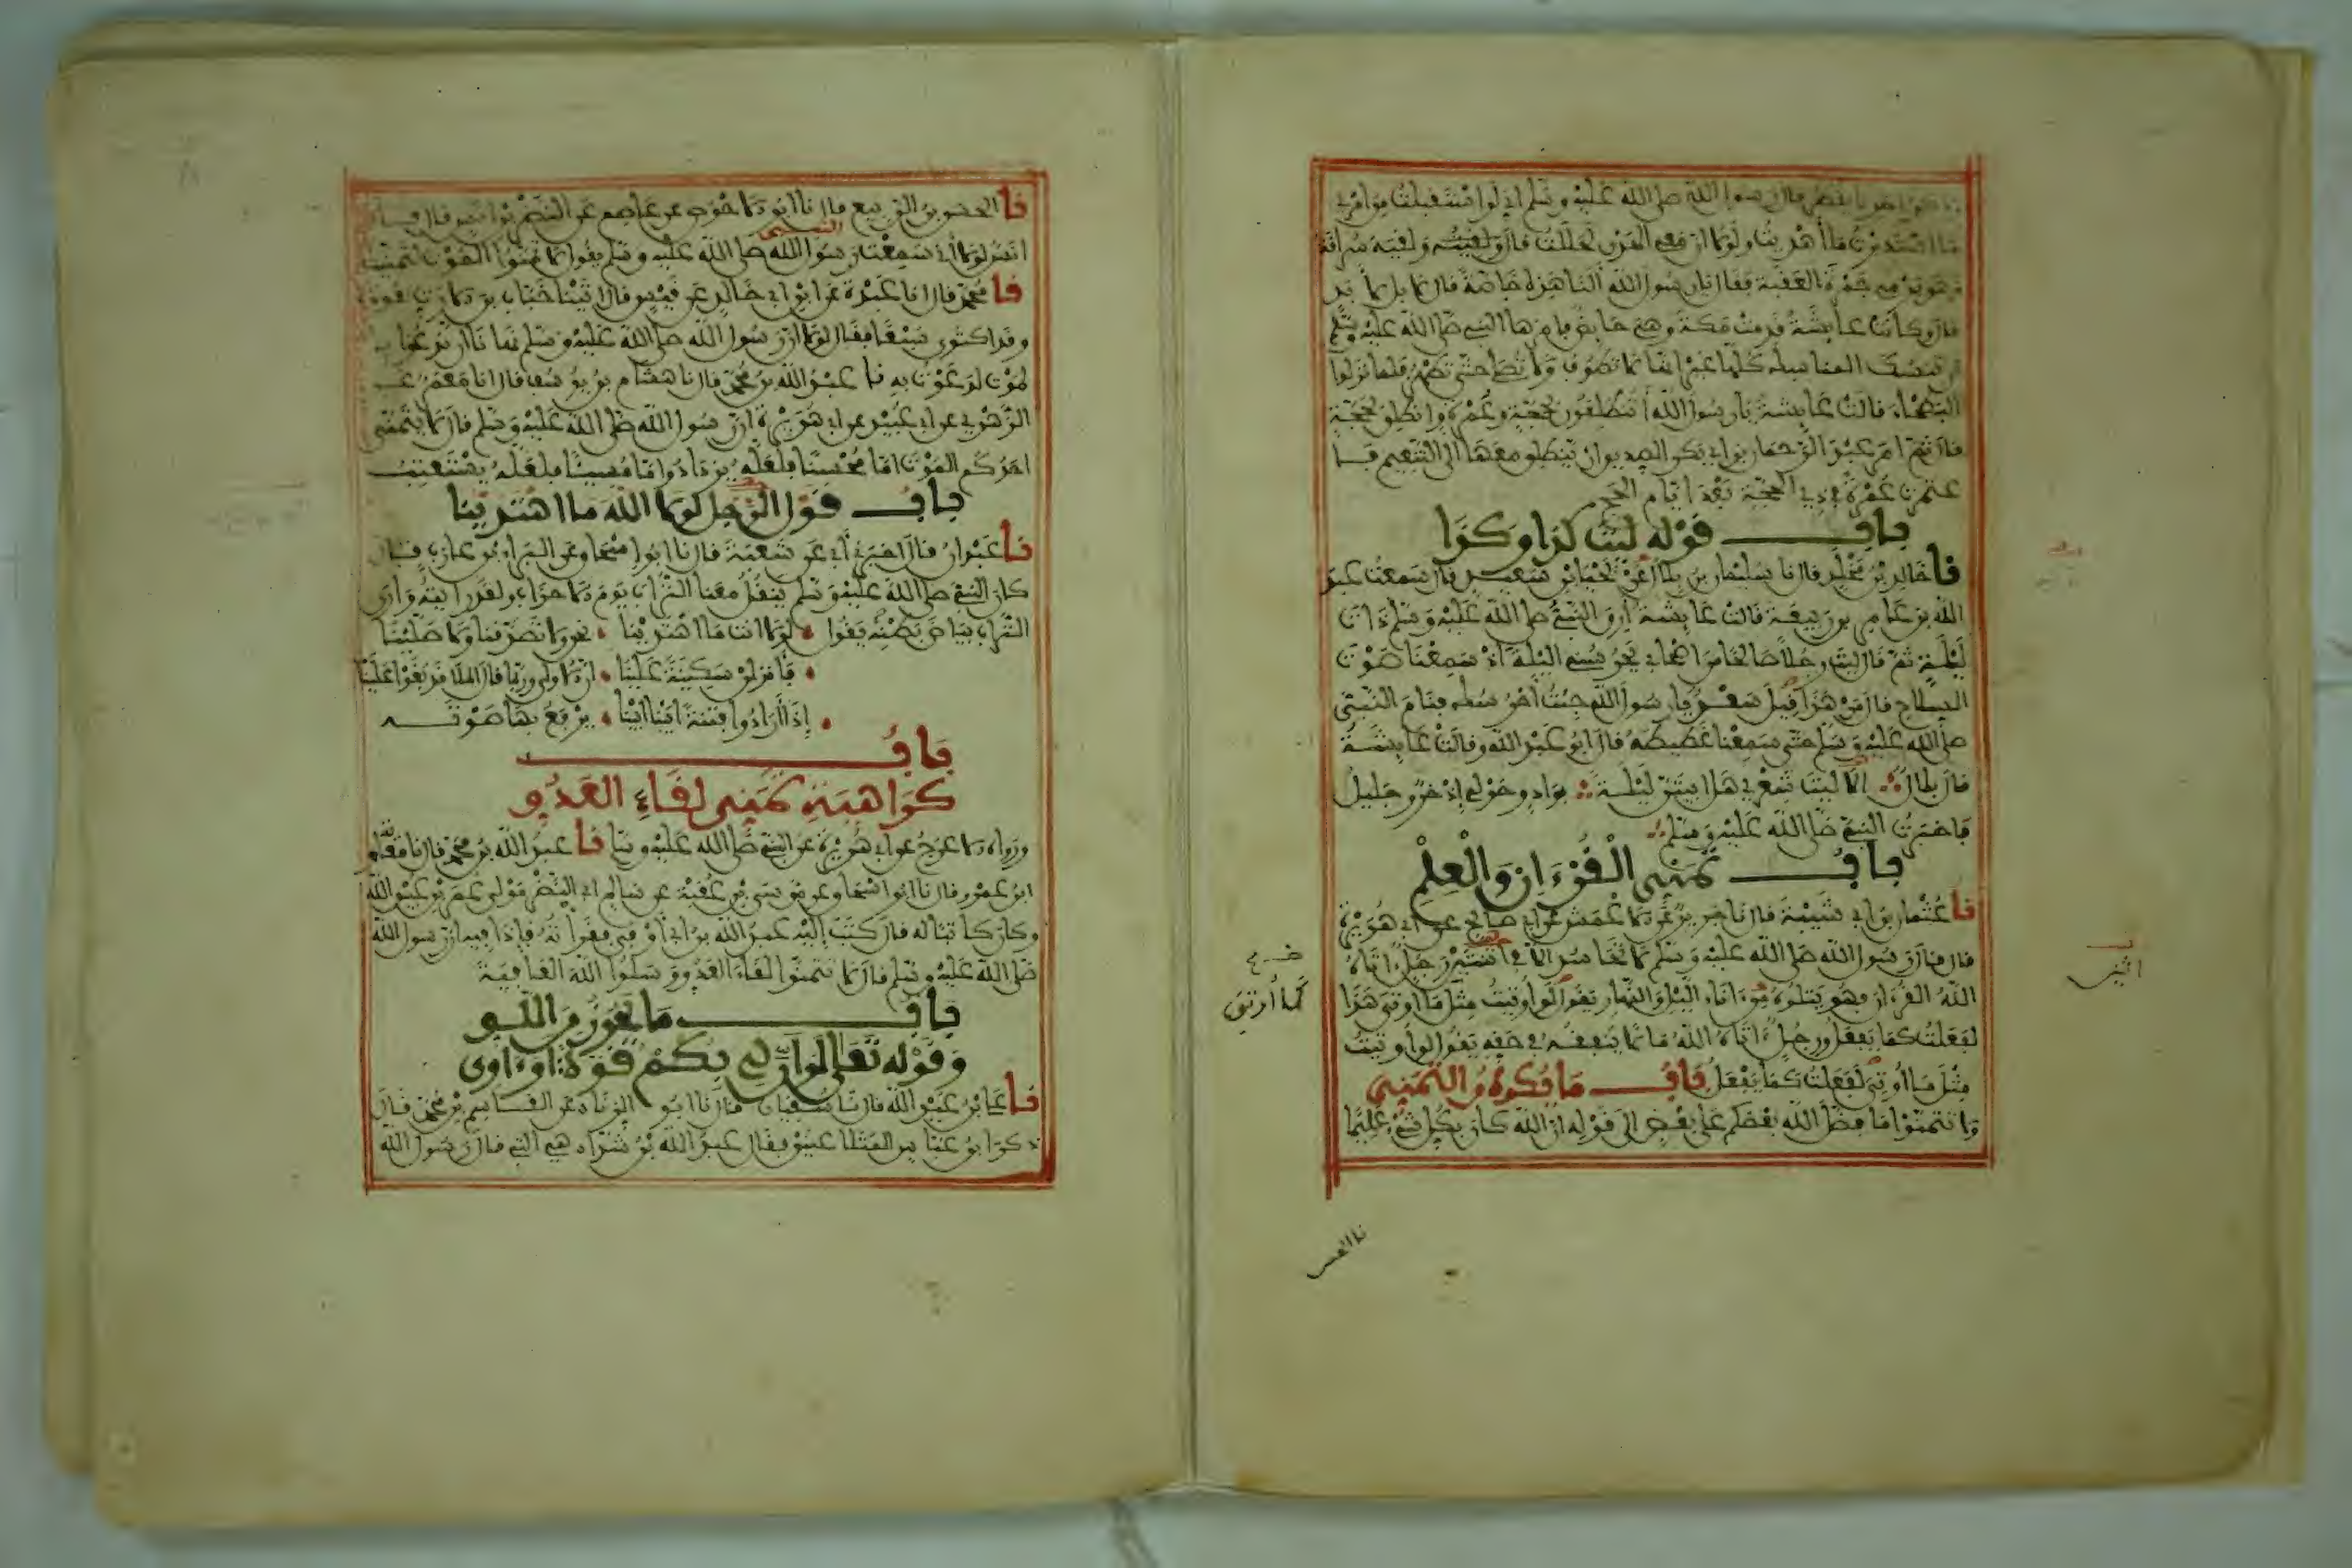 قال رسول الله صلى الله عليه وسلم اني لو استقبلت من امري
ما استدبرت ما أهديت ولولا ان معي الهدي لحللت قال ولقيه سراقة
وهو يرمي جمرة العقبة فقال يا رسول الله ألنا هذه خاصة قال لا بل لأبد
قال وكانت عائشة قدمت مكة وهي حائض فأمرها النبي صلى الله عليه وسلم
ان تنسك المناسك كلها غير انها لا تطوف ولا تصلي حتى تطهر فلما نزلوا
البطحاء قالت عائشة يا رسول الله أتنطلقون بحجة وعمرة وانطلق بحجة
قال ثم امر عبد الرحمان بن ابي بكر الصديق ان ينطلق معها الى التنعيم فا
عتمرت عمرة في ذي الحجة بعد ايام الحج
باب قوله ليت كذا وكذا
نا خالد بن مخلد قال نا سليمان بن بلال عن يحيى بن سعيد قال سمعت عبد
الله بن عامر بن ربيعة قالت عايشة أرق النبي صلى الله عليه وسلم ذات
ليلة ثم قال ليت رجلا صالحا من اصحابي يحرسني الليلة اذ سمعنا صوت
السلاح قال من هذا قيل سعد يا رسول الله جئت أحرسك فنام النبي
صلى الله عليه وسلم حتى سمعنا غطيطه قال ابو عبد الله وقالت عايشة
قال بلال الا ليت شعري هل ابيتن ليلة بواد وحولي إذخر وجليل
فاخبرت النبي صلى الله عليه وسلم
باب تمني القرءان والعلم
نا عثمان بن ابي شيبة قال نا جرير عن الاعمش عن ابي صالح عن ابي هريرة
قال قال رسول الله صلى الله عليه وسلم لا تحاسد الا في اثنتين رجل اتاه
الله القرءان فهو يتلوه من ءاناء الليل والنهار يقول لو اوتيت مثل ما اوتي هذا
لفعلت كما يفعل ورجل ءاتاه الله مالا ينفقه في حقه يقول لو أوتيت
مثل ما أوتي لفعلت كما يفعل باب ما يكره من التمني
ولا تتمنوا ما فضل الله بعضكم على بعض الى قوله ان الله كان بكل شيء عليما
كما أوتي
اثنين
نا الحسن
نا الحسن بن الربيع قال نا ابو الاحوص عن عاصم عن النضر بن انس قال قال
انس لولا أني سمعت رسول الله صلى الله عليه وسلم يقول لا تمنوا الموت لتمنيت
نا محمد قال انا عبدة عن ابن ابي خالد عن قيس قال اتينا خباب بن الارت نعوده
وقد اكتوى سبعا فقال لولا ان رسول الله صلى الله عليه وسلم نهانا ان ندعو با
لموت لدعوت به نا عبد الله بن محمد قال نا هشام بن يوسف قال انا معمر عن
الزهري عن ابي عبيد عن ابي هريرة ان رسول الله صلى الله عليه وسلم قال لا يتمنى
احدكم الموت اما محسنا فلعله يزداد واما مسيئا فلعله يستعتب
باب قول الرجل لولا الله ما اهتدينا
نا عبدان قال اخبرني أبي عن شعبة قال نا ابو اسحاق عن البراء بن عازب قال
كان النبي صلى الله عليه وسلم ينقل معنا التراب يوم الاحزاب ولقد رايته وارى
التراب بياض بطنه يقول لولا انت ما اهتدينا نحن ولا تصدقنا ولا صلينا
فأنزلن سكينة علينا ان الاولى وربما قال الملا قد بغوا علينا
إذا أرادوا فتنة ابينا ابينا يرفع بها صوته
باب
كراهية تمني لقاء العدو
ورواه الاعرج عن ابي هريرة عن النبي صلى الله عليه وسلم نا عبد الله بن محمد قال نا معاوية
ابن عمرو قال نا ابو اسحاق عن موسى بن عقبة عن سالم ابي النضر مولى عمر بن عبيد الله
وكان كاتبا له قال كتب إليه عبد الله بن ابي أوفى فقرأته فإذا فيه ان رسول الله
صلى الله عليه وسلم قال لا تتمنوا لقاء العدو وسلوا الله العافية
باب ما يجوز من اللو
وقوله تعالى لو ان لي بكم قوة او ءاوي
نا علي بن عبد الله قال نا سفيان قال نا ابو الزناد عن القاسم بن محمد قال
ذكر ابن عباس المتلاعنين فقال عبد الله بن شداد هي التي قال رسول الله